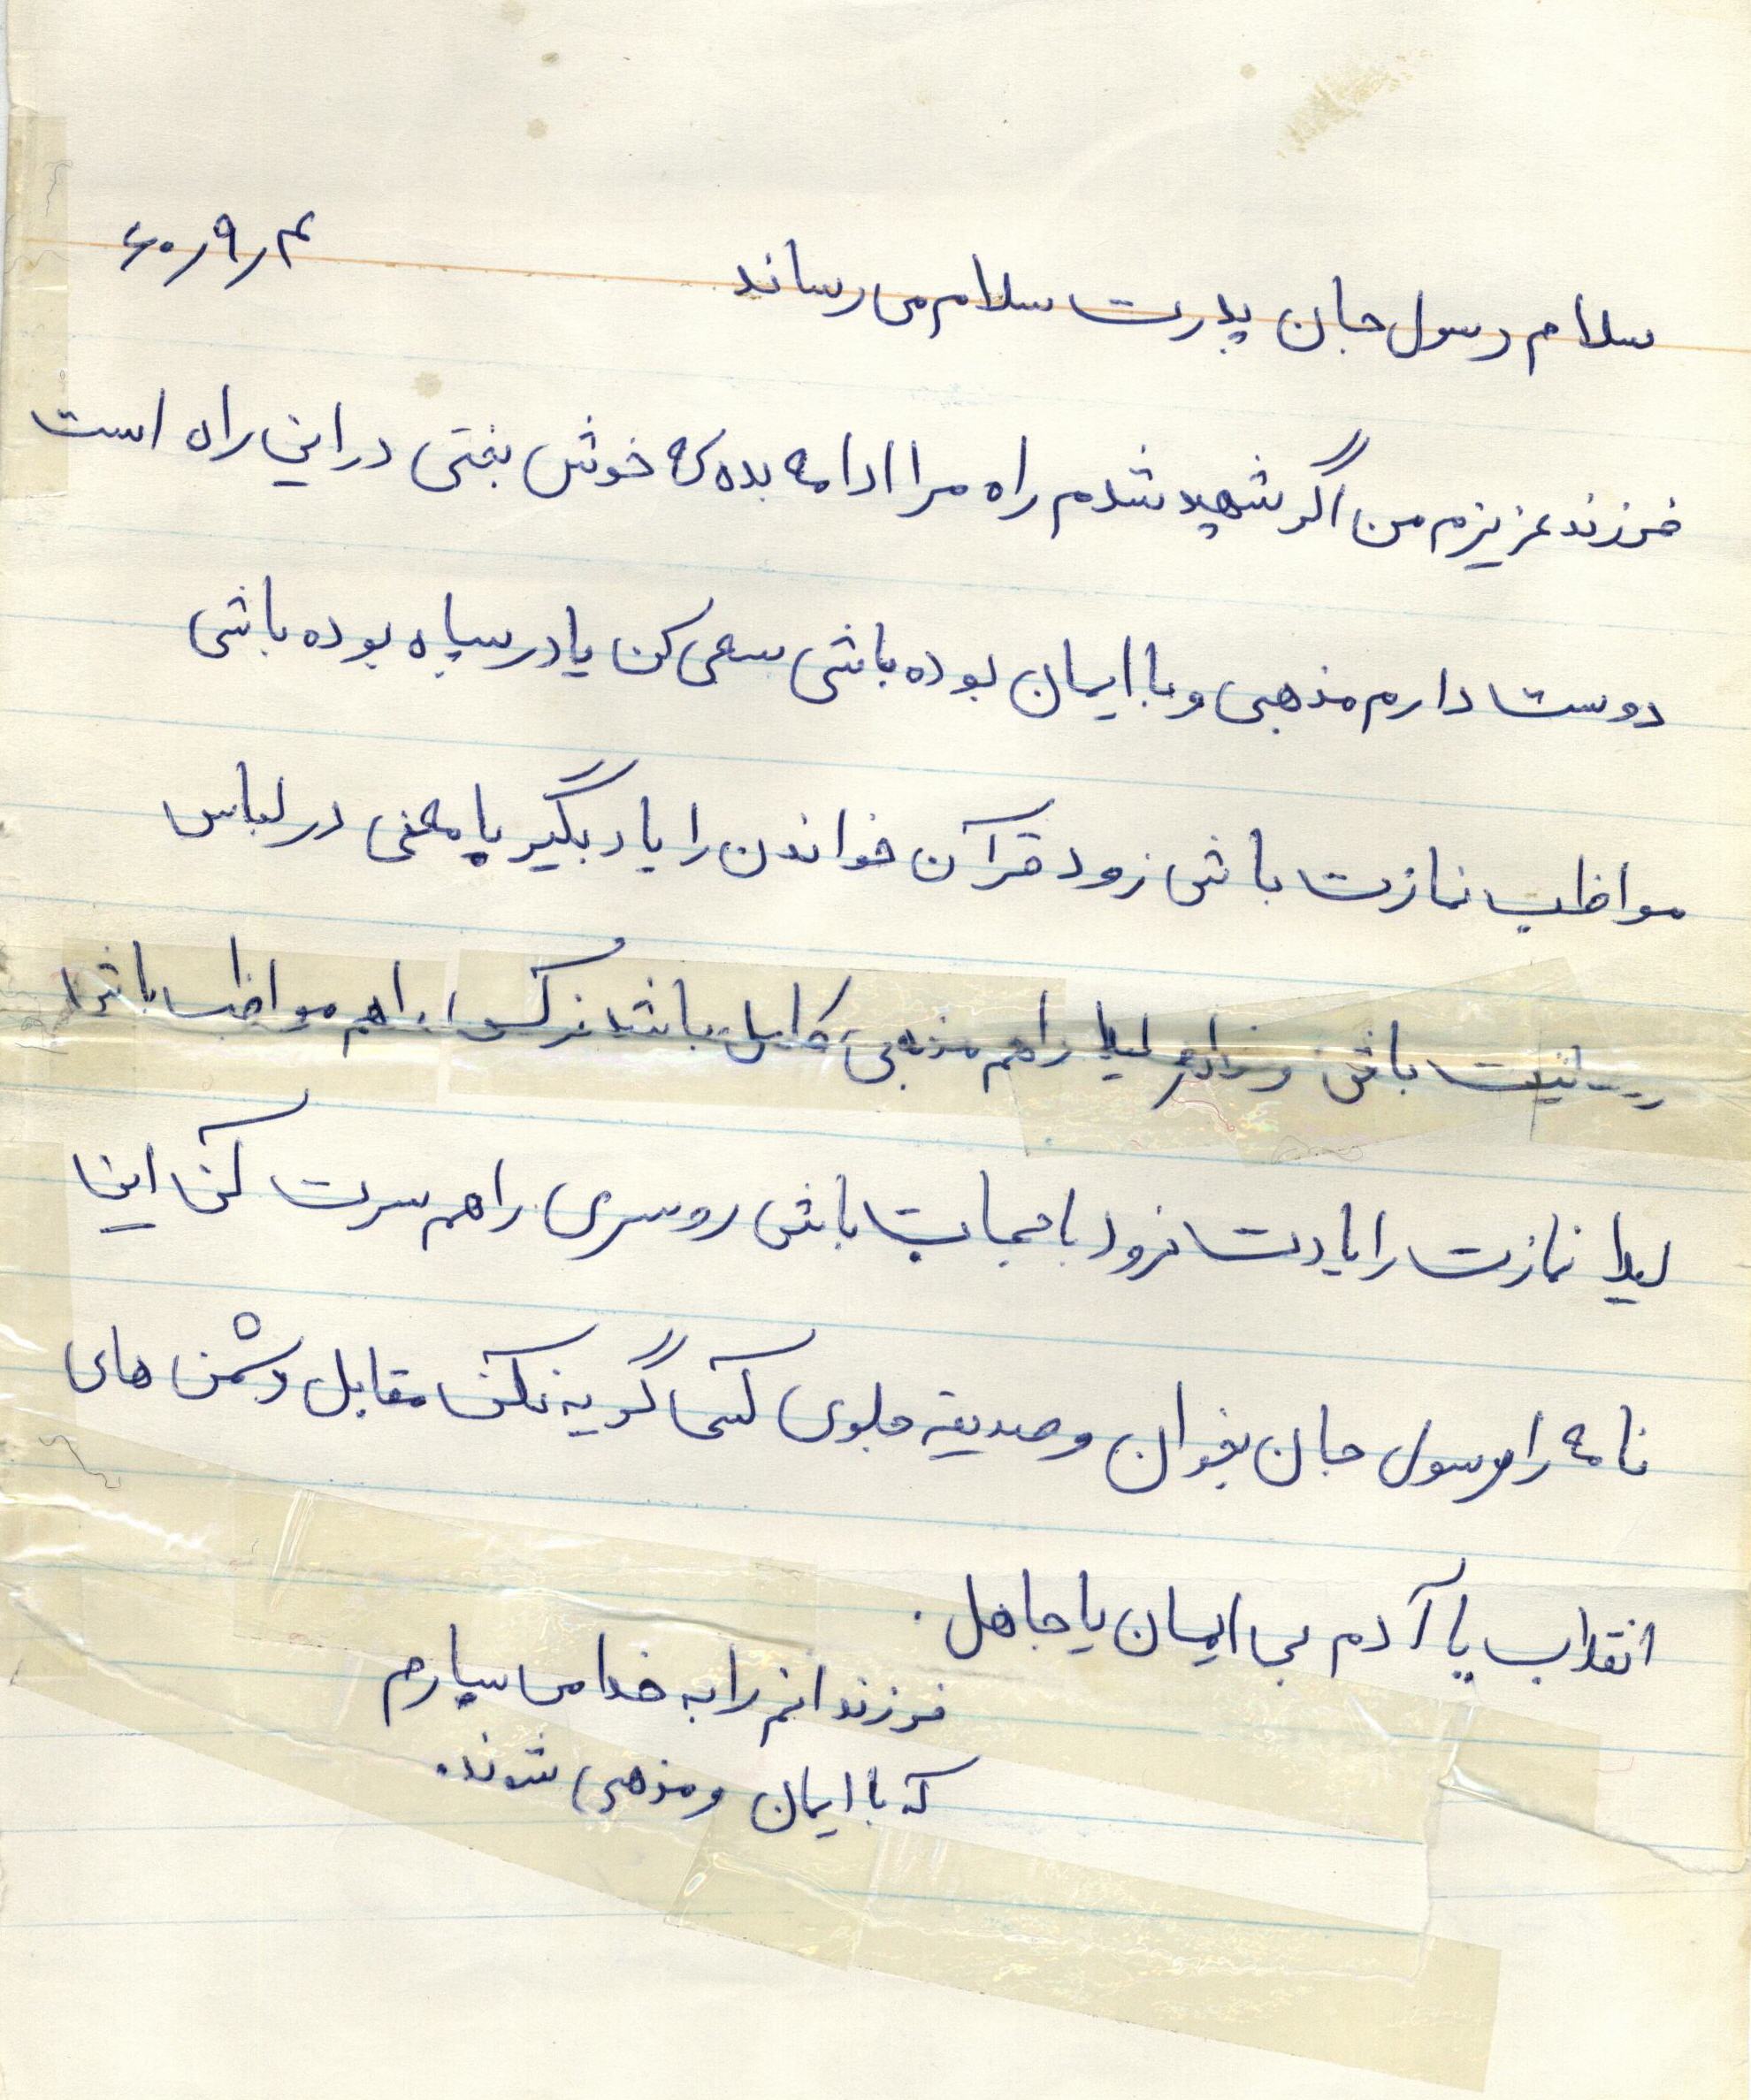 ۶۰/۹/۴
سلام رسول جان پدرت سلام می رساند
فرزند عزیزم من اگر شهید شدم راه مرا ادامه بده که خوش بختی در این راه است
دوست دارم مذهبی و با ایمان بوده باشی سعی کن یا در سپاه بوده باشی
مواظب نمازت باشی زود قرآن خواندن را یاد بگیر یا معنی در لباس
باشی و لیلا را هم مذهبی کامل باشد نرگس را هم مواظب باشد
لیلا نمازت را یادت نرود با حجاب باشی روسری را هم سرت کن این
نامه را رسول جان بخوان و صدیقه جلوی کسی گریه نکن مقابل دشمن های
انقلاب یا آدم بی ایمان یا جاهل.
فرزندانم را به خدا می سپارم
که با ایمان و مذهبی شوند.